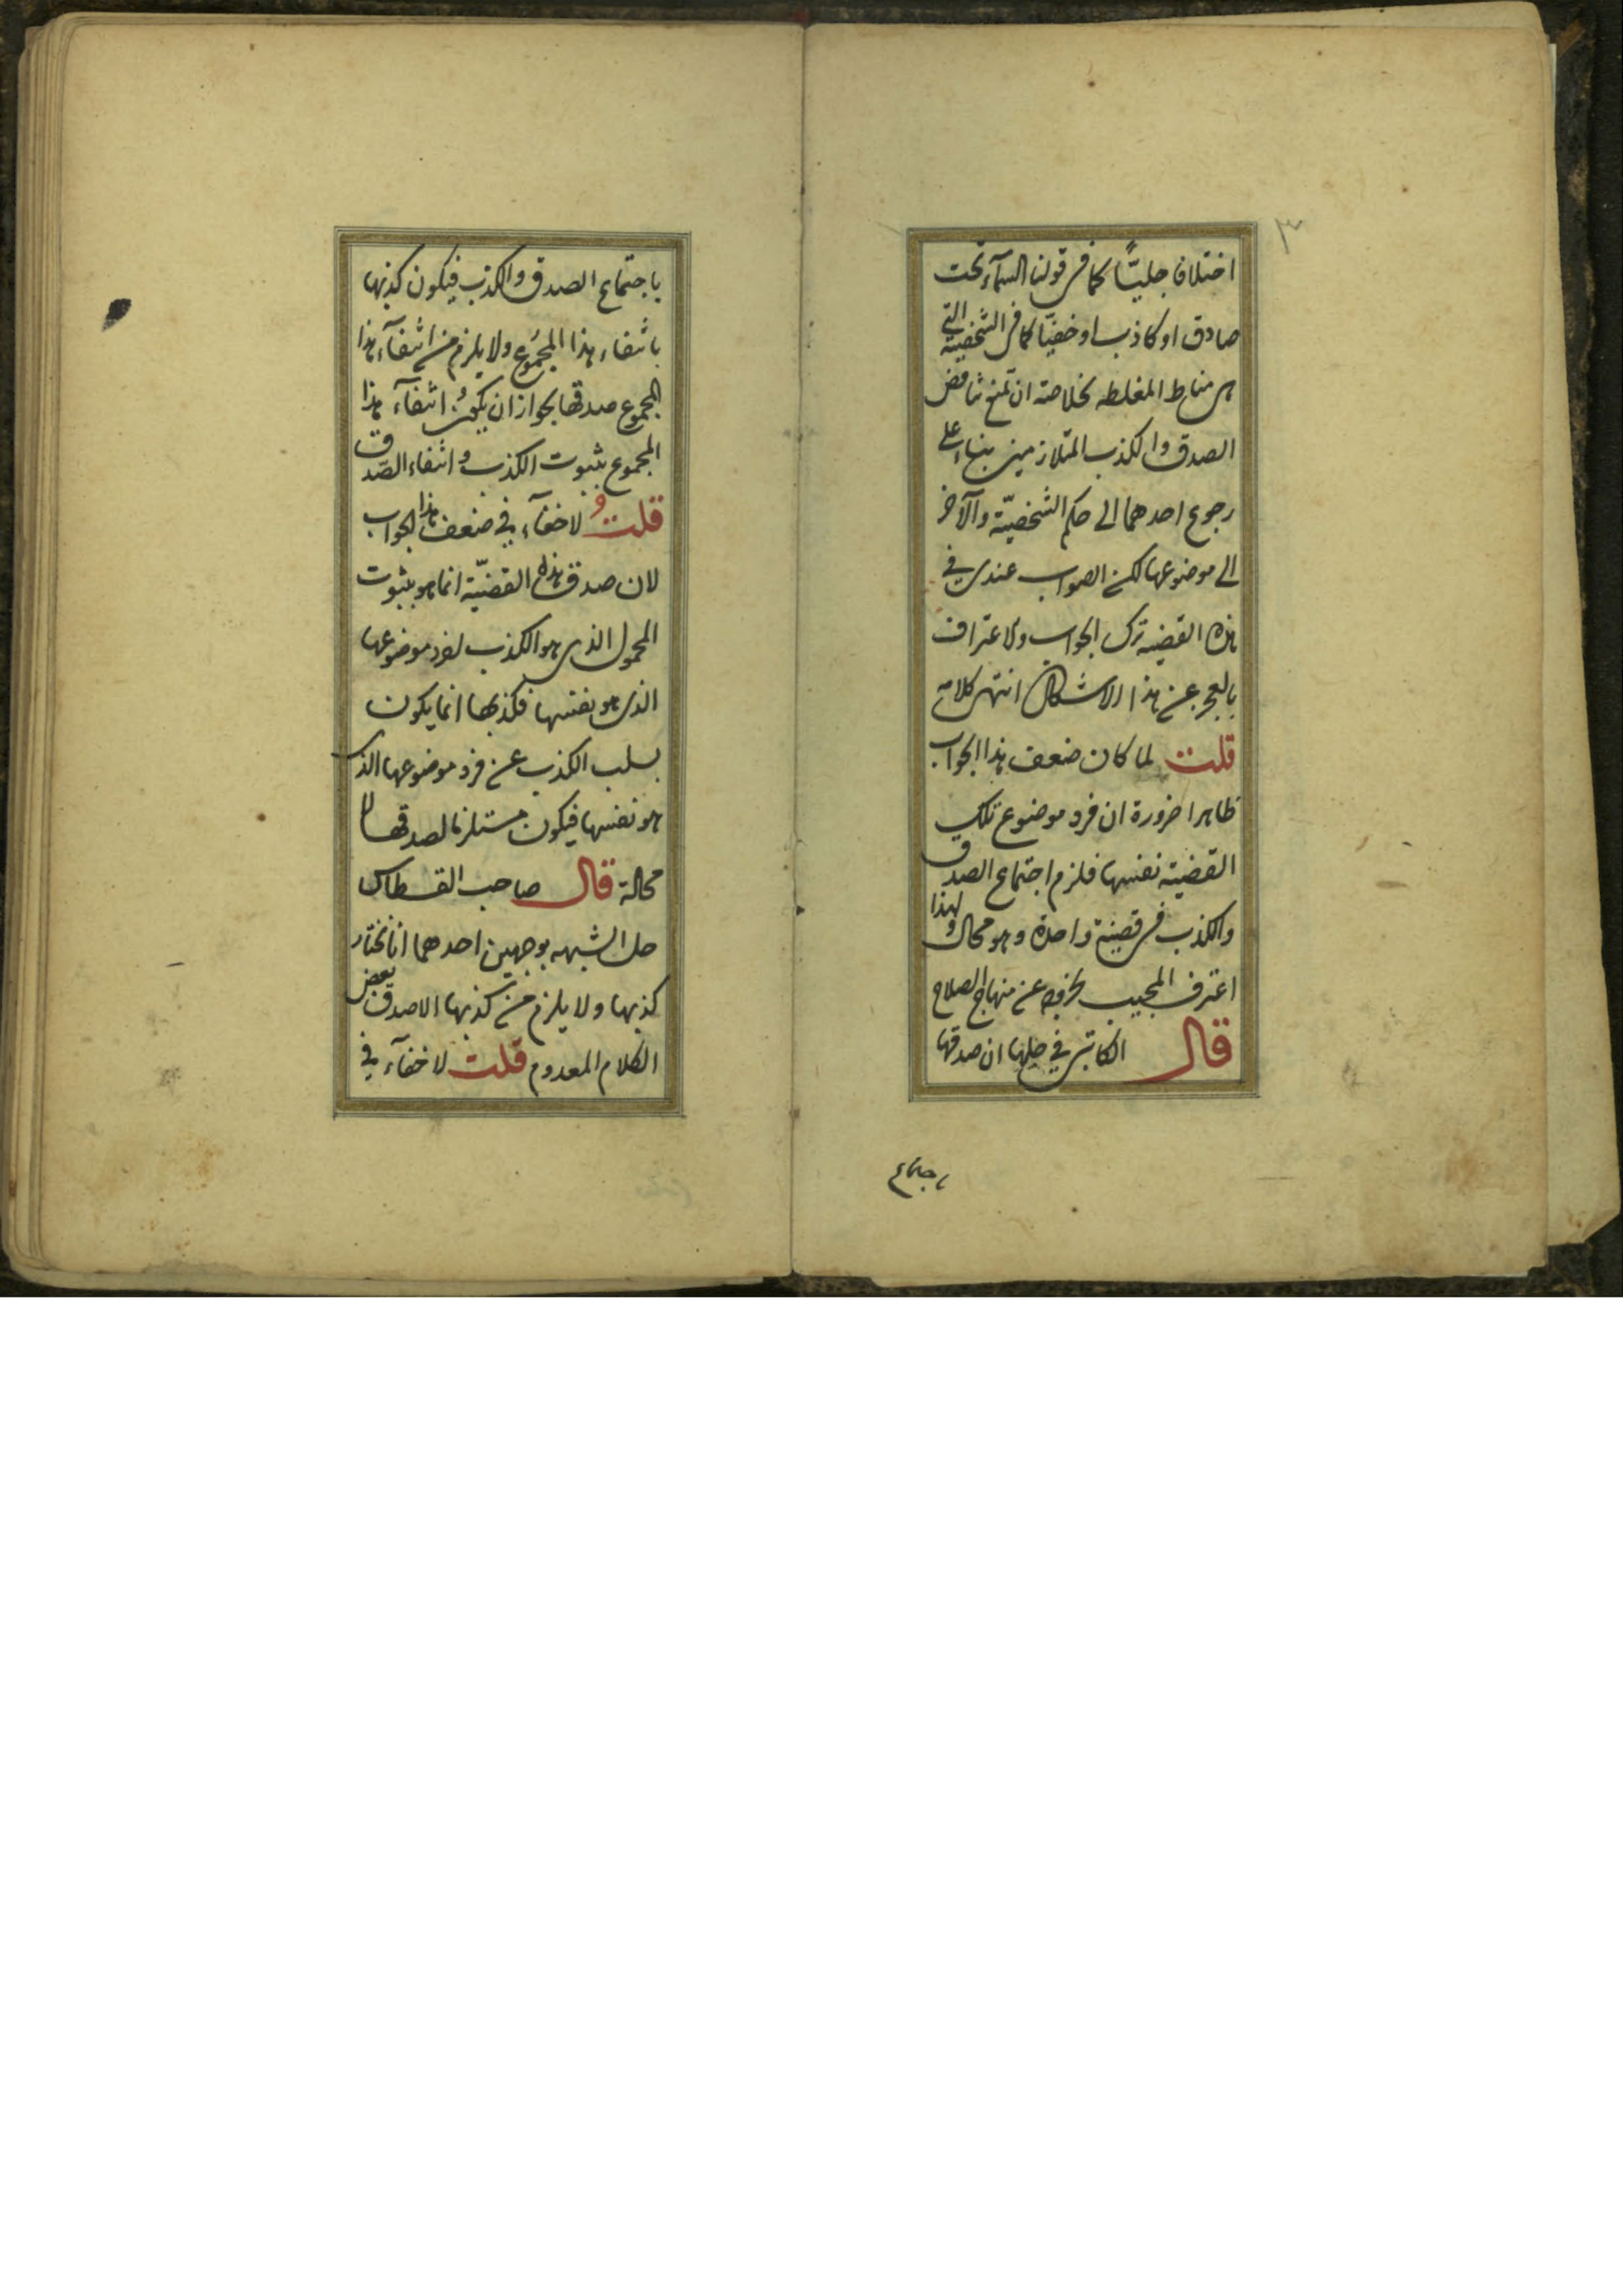 ٣
اختلافا جليّاً كما فى قولنا السمآء تحت
صادق او كاذب او خفيّا كما فى الشخصية التى
هى مناط المغلطه فخلاصته ان نمنع تناقض
الصدق والكذب المتلازمين بناء على
رجوع احدهما الى حكم الشخصيّة والآخر
الى موضوعها لكن الصواب عندى فى
هذه القضيه ترك الجواب والاعتراف
بالعجز عن هذا الاشكال انتهى كلامه
قلت لما كان ضعف هذا الجواب
ظاهرا ضرورة ان فرد موضوع تلك
القضيته نفسها فلزم اجتماع الصدق
والكذب فى قضية واحدة وهو محال ولهذا
اعترف المجيب بخروجه عن منهاج الصلاح
قال الكاتبى فى حلها ان صدقها
باجتماع
باجتماع الصدق والكذب فيكون كذبها
بانتفاء هذا المجموع ولا يلزم من انتفآء هذا
المجموع صدقها بجواز ان يكون انتفآء هذا
المجموع بثبوت الكذب وانتفاء الصّدق
قلت ولا خفآء فى ضعف هذا الجواب
لان صدق هذه القضيّة انما هو بثبوت
المحمول الذى هو الكذب لفرد موضوعها
الذى هو نفسها فكذبها انما يكون
بسلب الكذب عن فرد موضوعها الذى
هو نفسها فيكون مستلزما لصدقها لا
محالة قال صاحب القسطاس
حل الشبهه بوجهين احدهما انا نختار
كذبها ولا يلزم من كذبها الا صدق بعض
الكلام المعدوم قلت لا خفآء فى